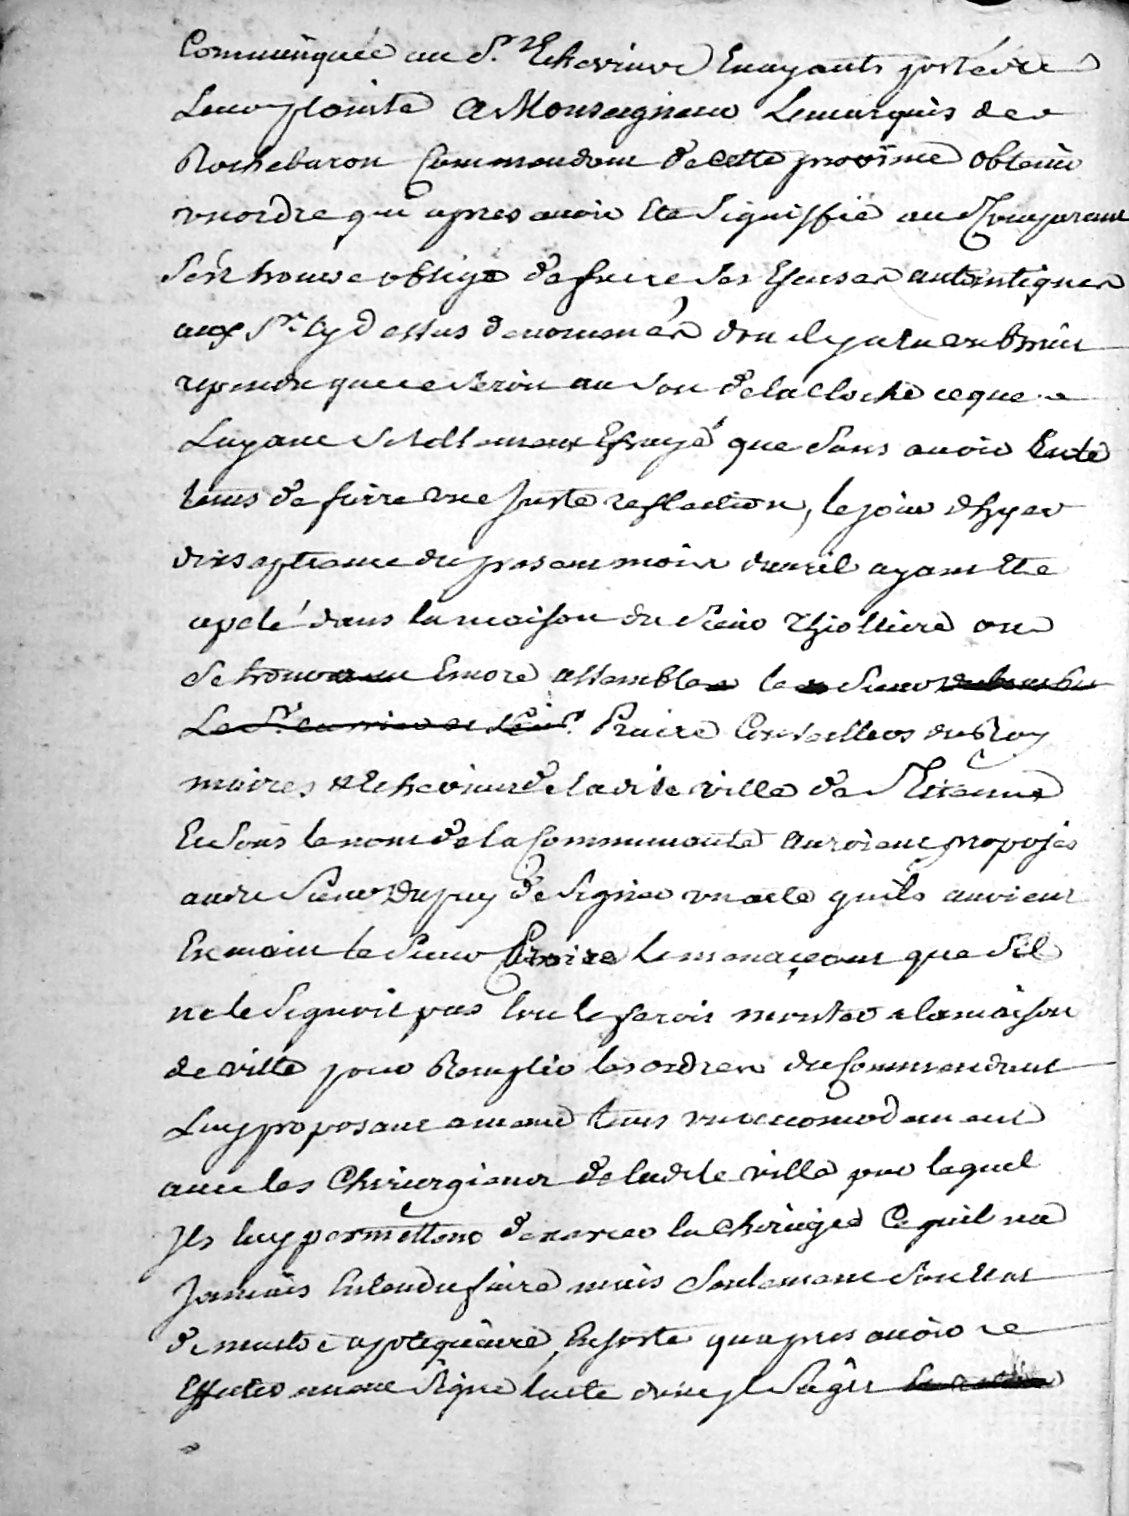 Communiquée au Sr. Echevinve Enayants porté
Leur plainte A Monseigneur Lemarquis de
Rochebaron Commendant decette province obtenir
vnordre qui apres auoir Ete Signiffié au Comparant
Sest trouve obligé defaire Ses Escuses autentiques
aux Srs. Cy dessus denommés don il
reponse que ce Seroit au Son delacloche ce que
Layant Sitellement Efrayé que Sans auoir Eu le
tems defaire vne Juste reflection, le jour dhyer
dixseptieme du present mois davril ayant Ete
apelé dans lamaison du Sieur Thiolliere ou
Se Encore assemble le Sieur
Praire Conseillers du Roy
maires Echevins deladite ville de St Etienne
Et Sous le nom de la Communauté auroient proposés
audit Sieur Dupuy de Signer vn acte quils auoient
En main le Sieur Praire Le menaçant que Sil
ne le Signoit pas lon le feroit monter alamaison
de ville pour Remplir les ordres du Commendant
Luy proposant amême tems vn accomodement
auec les Chirurgiens de ladite ville par lequel
Ils luy permettent dexercer la Chirurgie Ce quil na
Jamais Entendu faire mais Seulement Son Etat
de maitre apotiquaire, Ensorte quapres auoir
Signé lacte dont Sagit